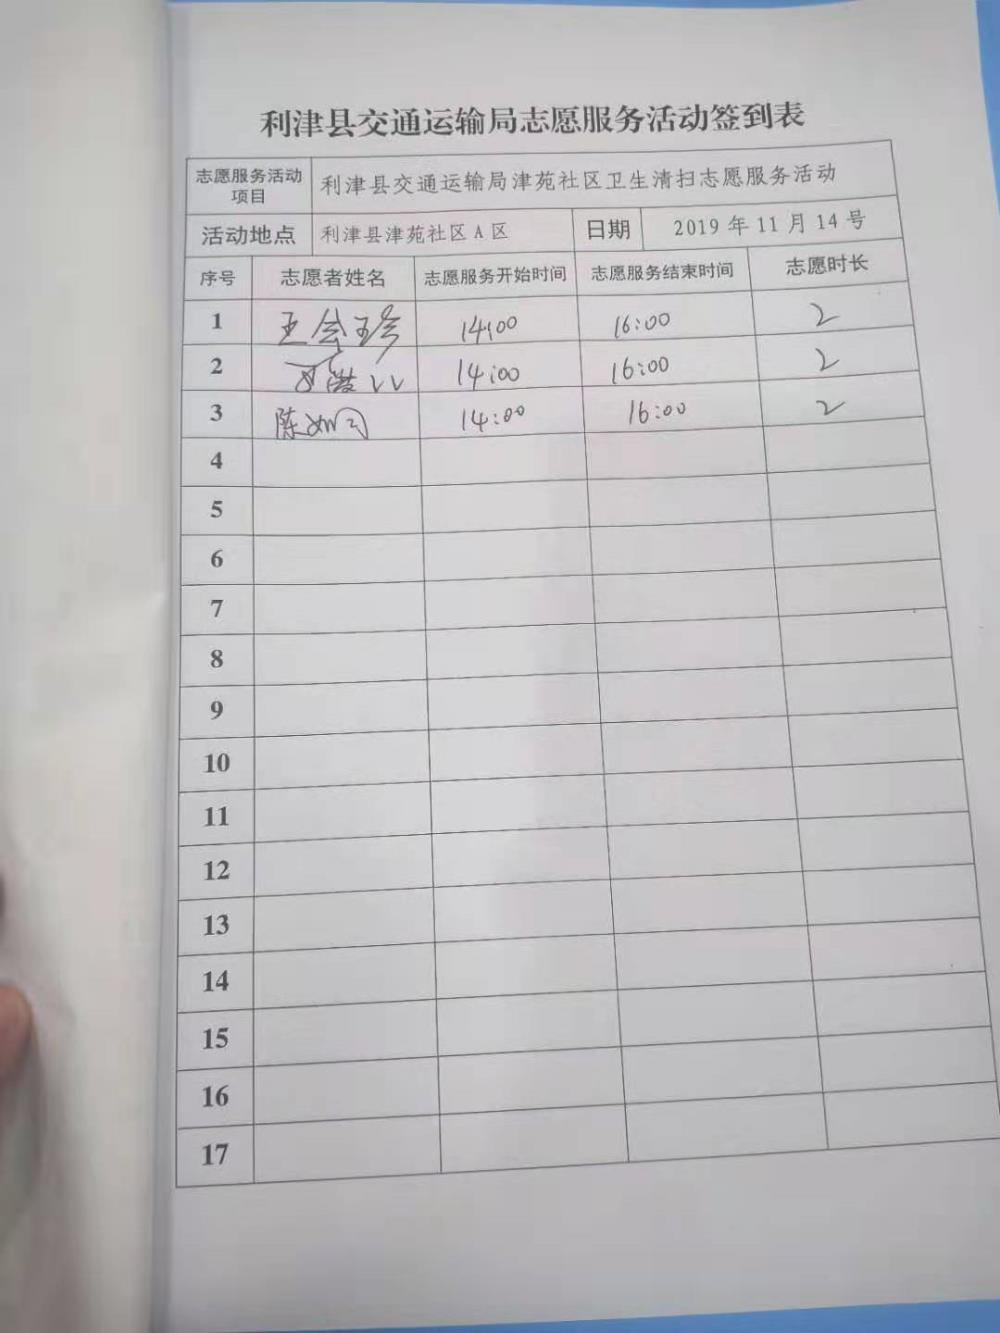 利津县交通运输局志愿服务活动签到表
志愿服务活动项目 利津县交通运输局津苑社区卫生清扫志愿服务活动
活动地点 利津县津苑社区A区 日期 2019年11月14号
序号 志愿者姓名 志愿服务开始时间 志愿服务结束时间 志愿时长
1 王会珍 14:00 16:00 2
2 14:00 16:00 2
3 陈如 14:00 16:00 2
4
5
6
7
8
9
10
11
12
13
14
15
16
17